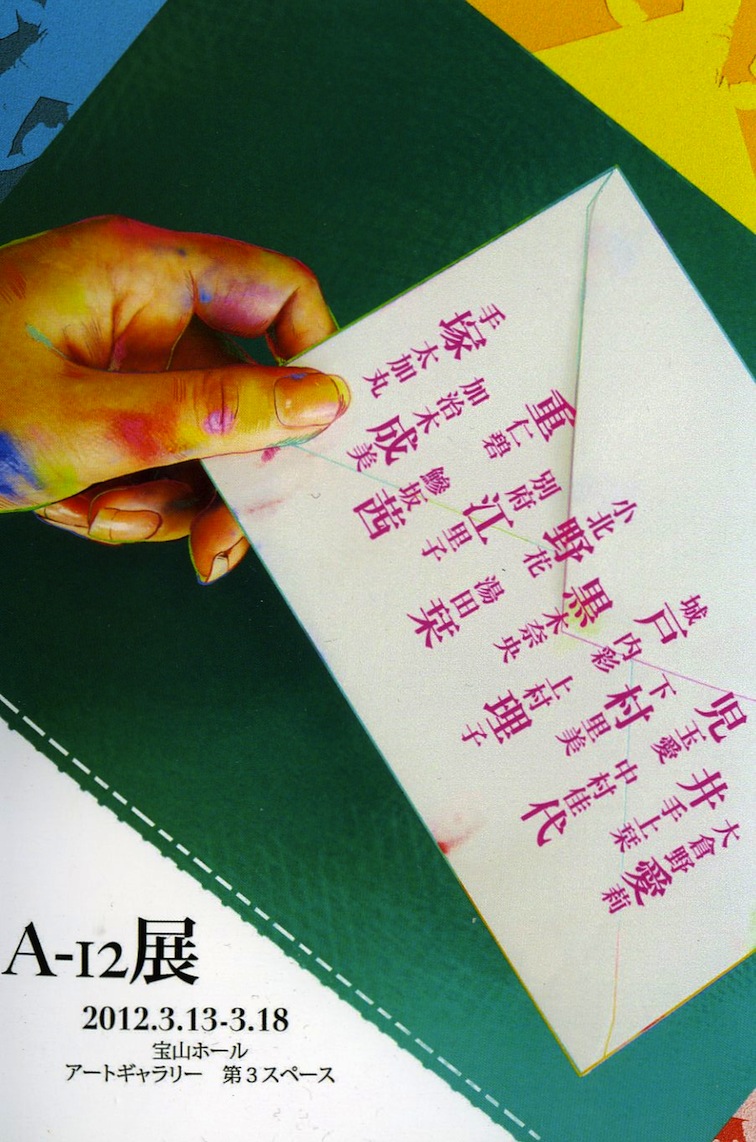 手塚太加丸
加治木成美
重仁碧
鰺坂茜
別府江里子
小北野花
湯田栞
黒木奈央
城戸内彩
上村理子
下村里美
児玉愛
中村佳代
井手上栞
大倉野愛莉
A-12展
2012.3.13-3.18
宝山ホール
アートギャラリー 第3スペース